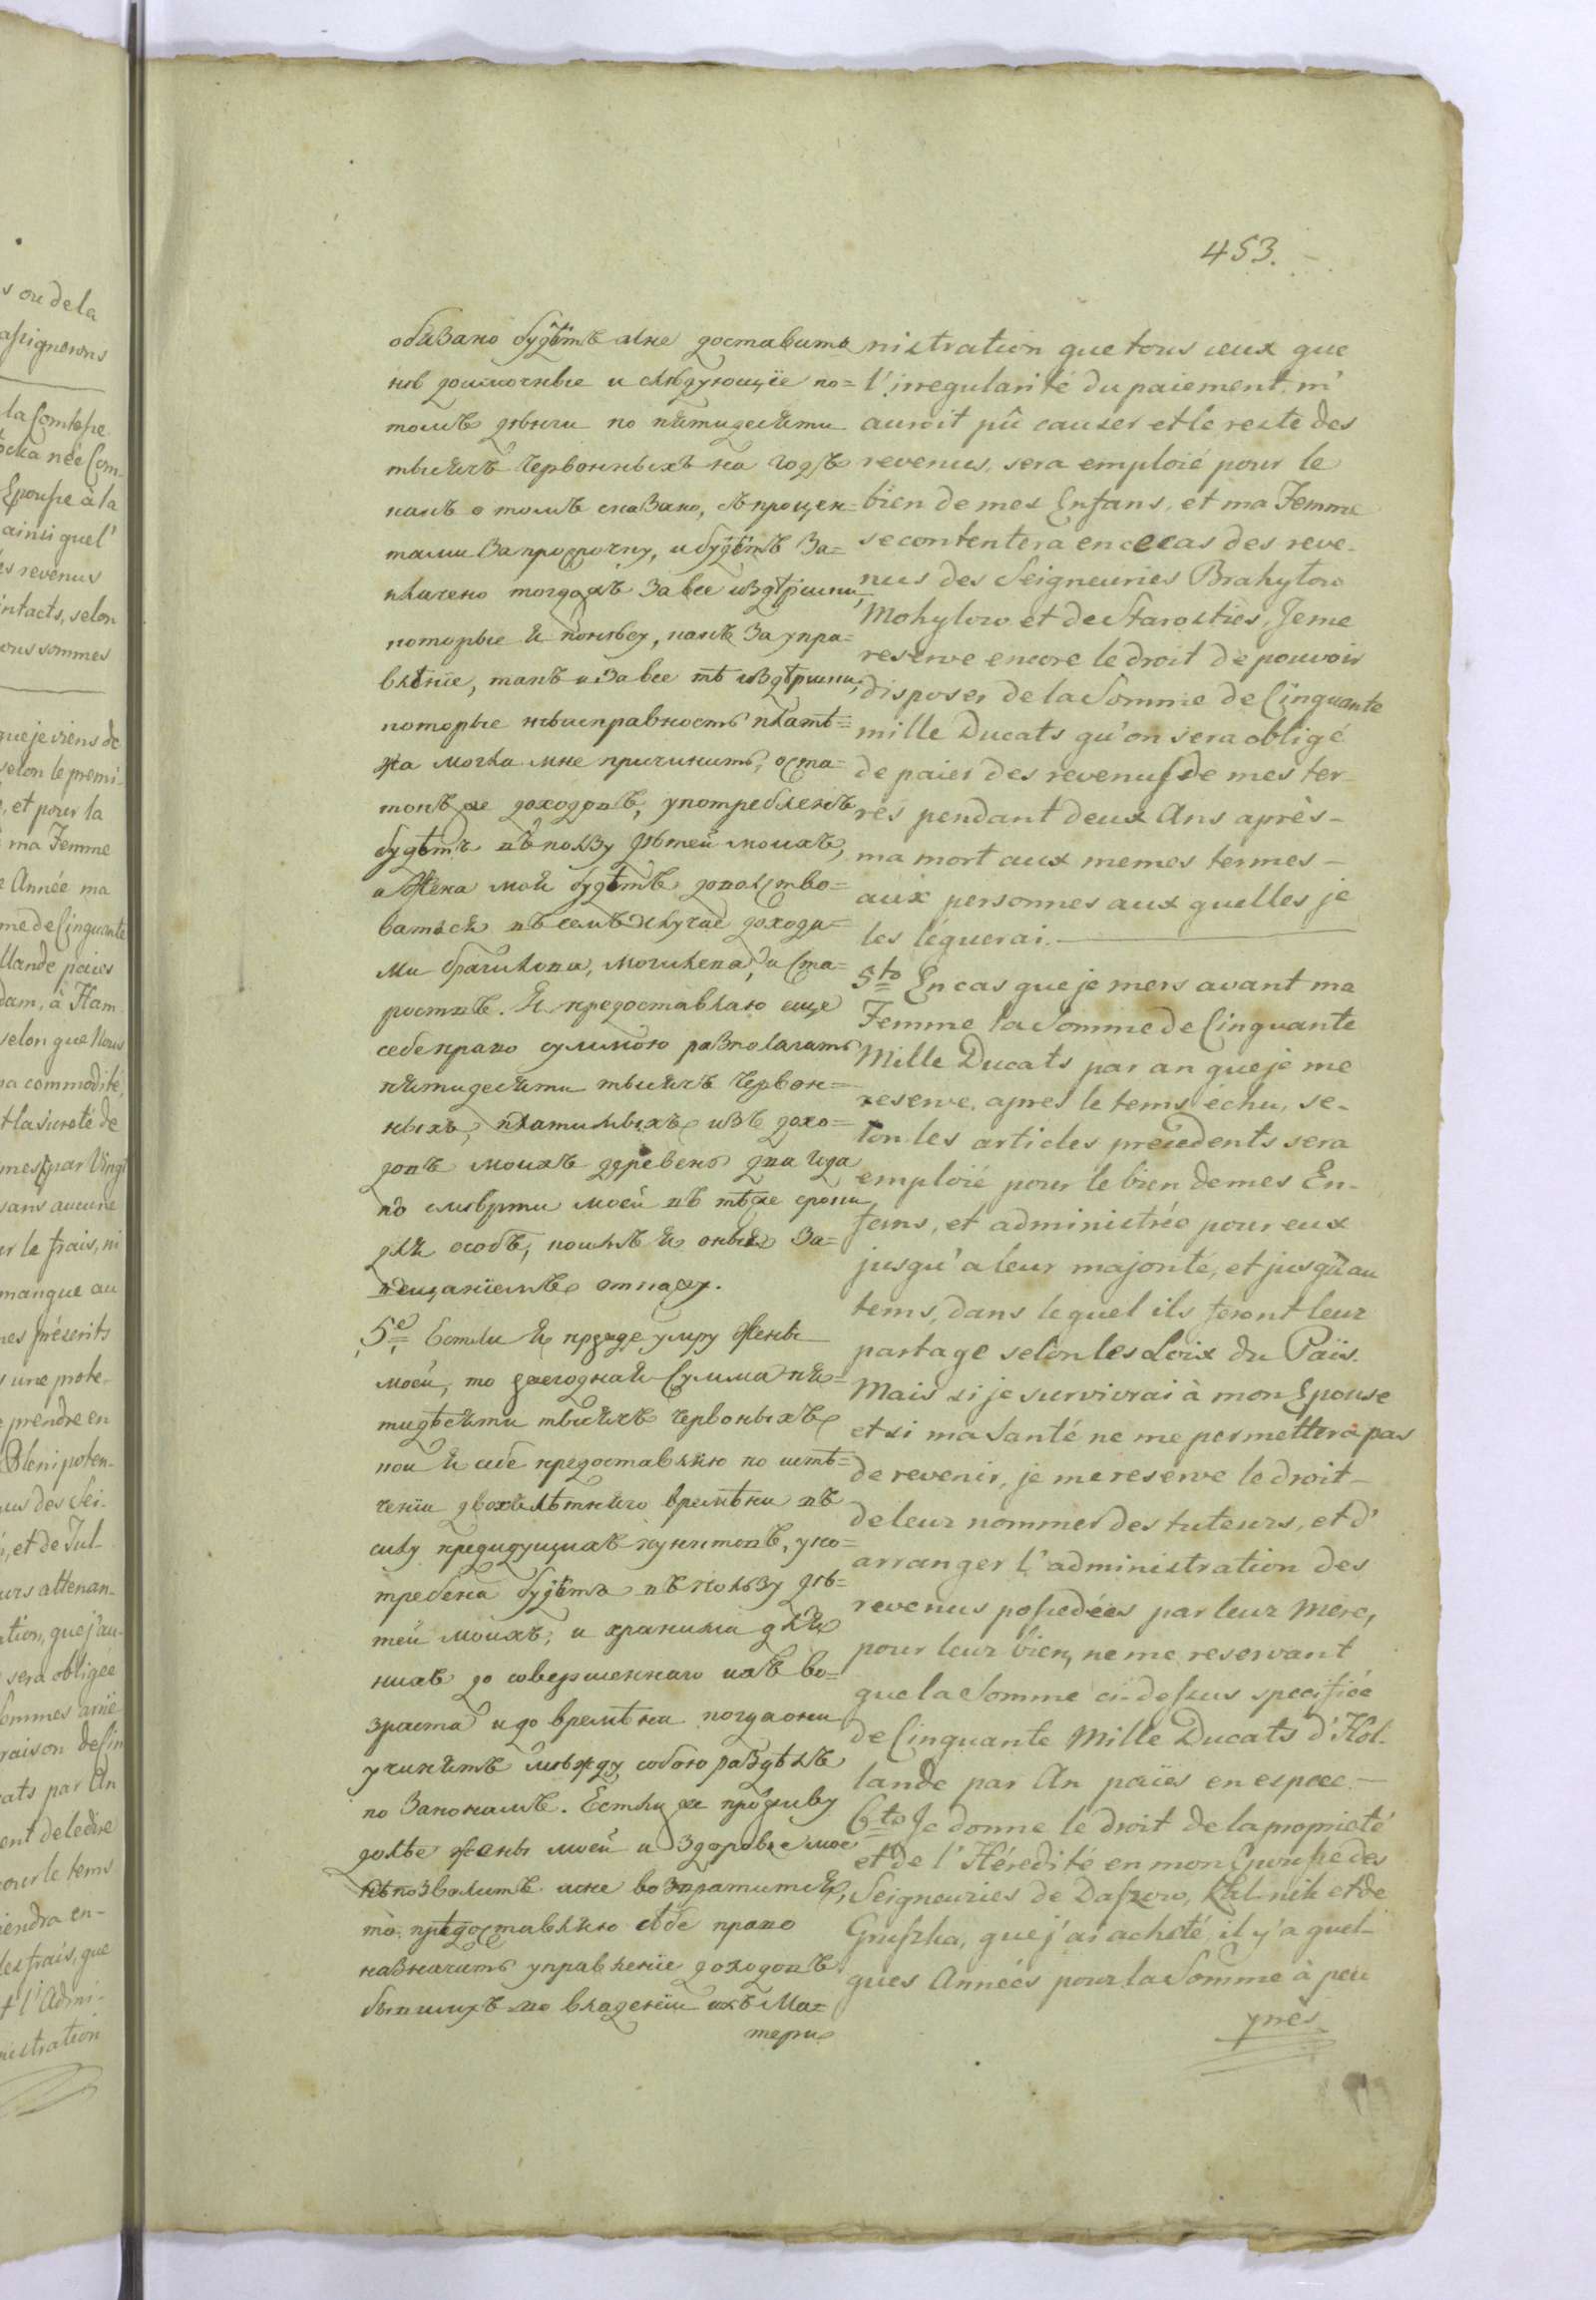 s ou de la
assignerons
la Comtesse
née Com-
Epouse à la
ainsi que l'
es revenus
intacts, selon
ous sommes
que je viens de
selon le premi-
, et pour la
ma Femme
e Année ma
me de Cinquante
llande païes
dam, à Ham
selon que Nous
a commodité,
t la sureté de
mes, par Vingt
sans aucune
er le frais, ni
manque au
es présents
s une prote-
prendre en
Plenipoten-
us des Sei-
, et de Jul-
urs attenan-
ation, que j'au-
sera obligée
sommes
raison de Cin
cats par An
ent de le dire
our le tems
iendra en-
les frais, que
t l'Admi-
nistration
453.
обязано будетъ мне доставить
не доимочные и следующїе по-
томъ деньги по пятидесяти
тысячъ червонныхъ на годъ
какъ о томъ сказано, съ процен-
тами за просрочку, и будетъ за-
плачено тогдажъ за все издержки,
которые я понесу, какъ за упра-
вленїе, такъ и за все тѣ издержки,
которые неисправность платѣ-
жа могла мне причинить, оста-
токъ же доходовъ, употребленъ
будетъ въ ползу детей моихъ,
а жена моя будетъ доволство-
ваться въ семъ случае дохода-
ми Брагилова, Могилева, и Ста-
роствъ. Я предоставляю еще
себе право суммою располагать
пятидесяти тысячъ червон-
ныхъ, платимыхъ изъ дохо-
довъ моихъ деревень два года
по смерти моей въ теже сроки
для особъ, коимъ я оные за-
вещанїемъ откажу.
5е Естли я прежде умру жены
моей, то ежегодная Сумма пя-
тидесяти тысячъ червоныхъ
кои я себе предоставляю по истѣ-
ченїи двохълѣтняго времѣни въ
силу предидущихъ пунктовъ, упо-
треблена будетъ въ ползу де-
тей моихъ, и хранима для
нихъ до совершеннаго ихъ во-
зраста и до времѣни когда они
учинятъ между собою раздѣлъ
по законамъ. Естли же проживу
долѣе жены моей и здоровье мое
непозволитъ мне возвратится,
то предоставляю себе право
назначить управленїе доходовъ
бывшихъ во владенїи ихъ Ма-
тери
nistration que tous ceux que
l'irregularité du paiement m'
auroit pû causer et le reste des
revenus, sera emploié pour le
bien de mes Enfans, et ma Femme
se contentera en ce cas des reve-
nus des Seigneuries Brahylow
Mohylow et de Starosties, Je me
reserve encore le droit de pouvoir
disposer de la Somme de Cinquante
mille Ducats qu'on sera obligé
de paier des revenus de mes ter-
res pendant deux Ans après-
ma mort aux memes termes-
aux personnes aux quelles je
les léguerai.
5to En cas que je mers avant ma
Femme la Somme de Cinquante
Mille Ducats par an que je me
reserve, apres le tems échu, se-
lon les articles precedents sera
emploié pour le bien de mes En-
fans, et administrée pour eux
jusqu'a leur majorité, et jusqu'au
tems, dans lequel ils feront leur
partage selon les Loix du Païs.
Mais si je survivrai à mon Epouse
et si ma Santé ne me permettera pas
de revenir, je me reserve le droit-
de leur nommer des tuteurs, et d'
arranger l'administration des
revenus possedées par leur Mere,
pour leur bien, ne me reservant
que la Somme ci-dessus specifiée
de Cinquante Mille Ducats d'Hol-
lande par An païes en espece.-
6to Je donne le droit de la proprieté
et de l'Hérédité en mon Epouse des
Seigneuries de Daszow, Kalnik et de
Gruszka, que j'ai acheté, il y'a quel-
ques Années pour la Somme à peu
près